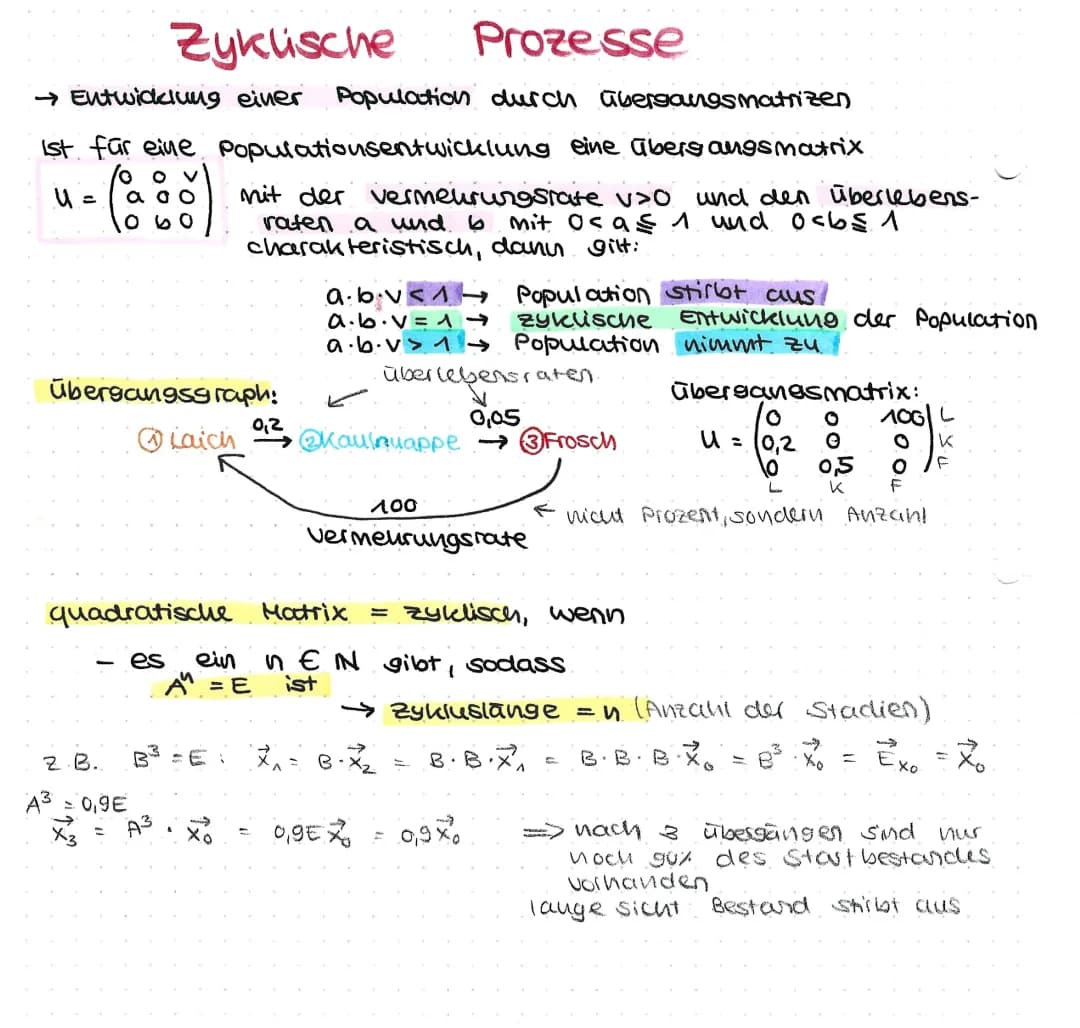 Zyklische Prozesse
→ Entwicklung einer Population durch Übergangsmatrizen
Ist für eine Populationsentwicklung eine Übergangsmatrix
U = (0 0 v) mit der Vermehrungsrate v>0 und den Überlebens-
(a 0 0) raten a und b mit 0<a≤1 und 0<b≤1
(0 b 0) charakteristisch, dann gilt:
a·b·v < 1 → Population stirbt aus
a·b·v = 1 → zyklische Entwicklung der Population
a·b·v > 1 → Population nimmt zu
Überlebensraten
Übergangsgraph:
① Laich 0,2 → ② Kaulquappe 0,05 → ③ Frosch
100
Vermehrungsrate
← nicht Prozent, sondern Anzahl
Übergangsmatrix:
U = (0 0 100) L
(0,2 0 0) K
(0 0,5 0) F
L K F
quadratische Matrix = zyklisch, wenn
- es ein n ∈ N gibt, sodass
Aⁿ = E ist
→ Zykluslänge = n (Anzahl der Stadien)
z.B. B³ = E : x⃗₁ = B·x⃗₂ = B·B·x⃗₁ = B·B·B·x⃗₀ = B³·x⃗₀ = E⃗x₀ = x⃗₀
A³ = 0,9E
x⃗₃ = A³ · x⃗₀ = 0,9E x⃗₀ = 0,9x⃗₀
=> nach 3 Übergängen sind nur
noch 90% des Startbestandes
vorhanden
lange sicht Bestand stirbt aus